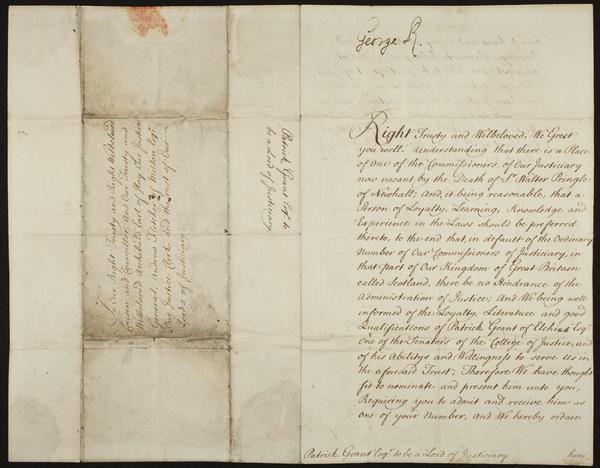 George R.
Right Trusty and Welbeloved, We Greet
you well. Understanding that there is a Place
of One of the Commissioners of Our Justiciary
now vacant by the Death of Sr. Walter Pringle
of Newhall; And, it being reasonable, that a
Person of Loyalty, Learning, Knowledge and
Experience in the Laws should be preferred
thereto, to the end that, in default of the Ordinary
Number of Our Commissioners of Justiciary, in
that part of Our Kingdom of Great Britain
called Scotland, there be no Hindrance of the
Administration of Justice; And We being well
informed of the Loyalty, Literature and good
Qualifications of Patrick Grant of Elchies Esqr.
One of the Senators of the College of Justice, and
of his Abilitys and Willingness to serve Us in
the aforesaid Trust; Therefore We have thought
fit to nominate and present him unto you,
Requiring you to admit and receive him as
one of your Number, And We hereby ordain
Patrick Grant Esqr. to be a Lord of Justiciary
him
Patrick Grant Esqr. to
be a Lord of Justiciary
To Our Right Trusty and Right Welbeloved
Cousin and Councillor, And Our Trusty and
Welbeloved Archibald Earl of Ilay Our Justice
General, Andrew Fletcher of Milton Esqr.
Our Justice Clerk and the rest of Our
Lords of Justiciary.